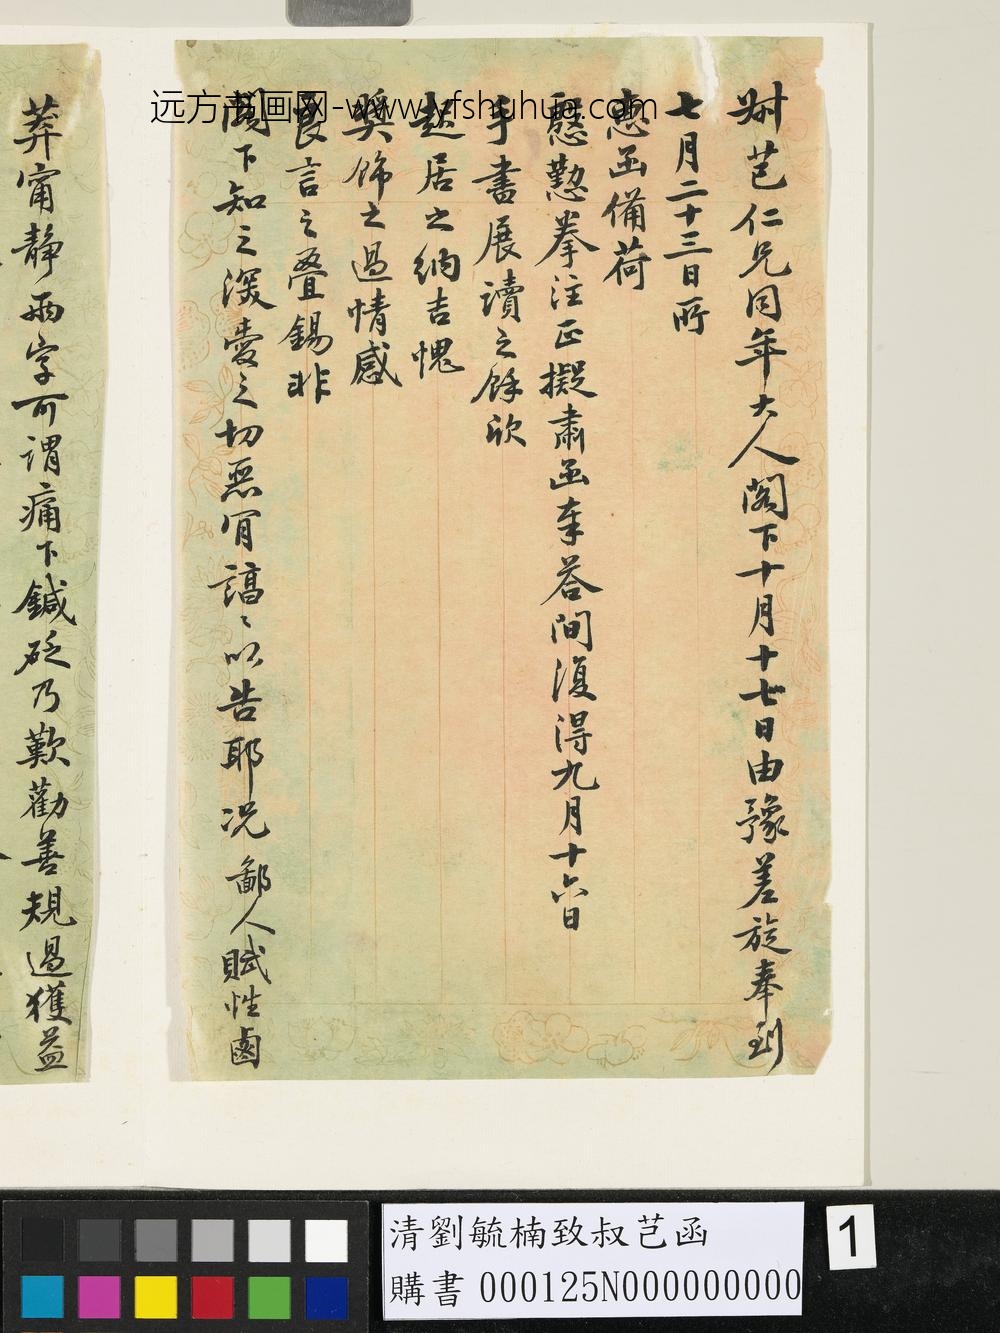 尗芑仁兄同年大人閣下十月十七日由豫差旋奉到
七月二十三日所
惠函備荷
慇懃拳注正擬肅函奉答間復得九月十六日
手書展讀之餘欣
起居之納吉愧
奬飾之過情感
良言之疊錫非
閣下知之深愛之切惡肎謞〻以告耶况鄙人賦性鹵
莽甯靜兩字可謂痛下鍼砭乃歎勸善規過獲益
远方书画网-www.yfshuhua.com
清劉毓楠致叔芑函
購書 000125N000000000
1